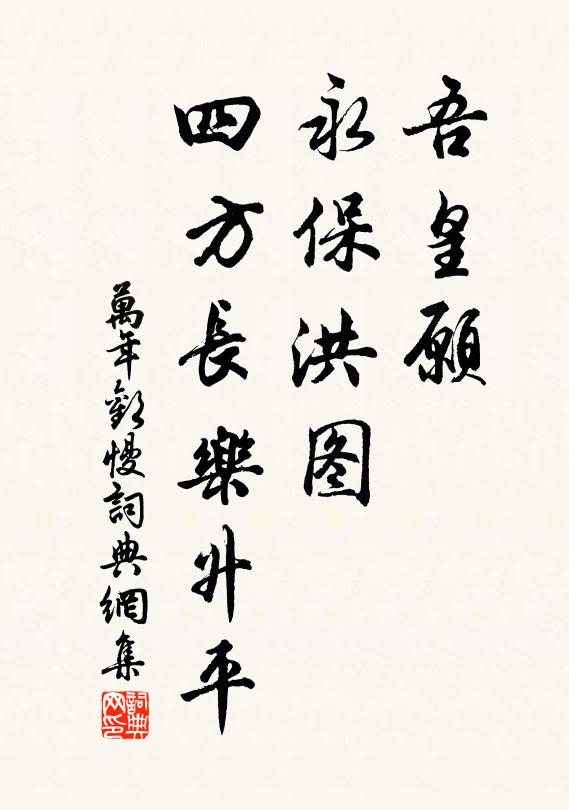 吾皇願
永保洪图
四方長樂升平
萬年歡慢詞典網集
詞典网印